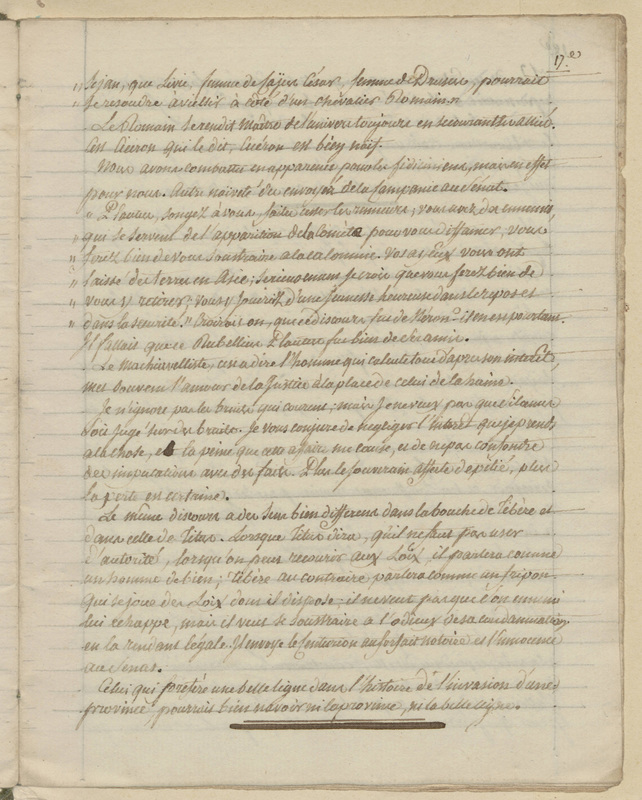 17.
„ Sejan, que Livie, femme de Caÿus César, femme de Drusus, pourrait
„ se resoudre à vieillir à coté d'un chevalier Romain »
Le Romain se rendit maître de l'univers toujours en secourant ses alliés.
C'est Ciceron qui le dit, Ciceron est bien naïf.
Nous avons combattu en apparence pour les Sidiciniens, mais en effet
pour nous. Autre naïveté des envoyés de la Campanie au Sénat.
„ Plautus, songez à vous, faites cesser les rumeurs; vous avez des ennemis
„ qui se servent de l'apparition de la Comète pour vous diffamer, vous
„ ferez bien de vous soustraire à la calomnie. Vos ayeux vous ont
„ laissé des terres en Asie; serieusement je crois que vous ferez bien de
„ vous y retirer; vous y jouirez d'une jeunesse heureuse dans le repos et
„ dans la securité. » Croirait-on, que ce discours fut de Néron? il en est pourtant.
Il fallait que ce Rubellius Plautus fut bien de ses amis.
Le machiavelliste, c'est à dire l'homme qui calcule tout d'après son intérêt,
met souvent l'amour de la Justice à la place de celui de la haine.
Je n'ignore pas les bruits qui courent; mais je ne veux pas que Silanus
soit jugé sur des bruits. Je vous conjure de negliger l'intérêt que je prends
à la chose, et la peine que cette affaire me cause, et de ne pas confondre
des imputations avec des faits. Plus le souverain affecte de pitié, plus
la perte est certaine.
Le même discours a des sens bien différens dans la bouche de Tibère et
dans celle de Titus. Lorsque Titus dira, qu'il ne faut pas user
d'autorité, lorsqu'on peut recourir aux Loix, il parlera comme
un homme de bien; Tibère au contraire parlera comme un fripon
qui se joue des Loix dont il dispose; il ne veut pas que l'ennemi
lui échappe, mais il veut se soustraire à l'odieux de sa condamnation,
en la rendant légale. Il envoye le Centurion au forfait notoire et l'innocence
au Senat.
Celui qui préfère une belle ligne dans l'histoire de l'invasion d'une
province, pourrait bien n'avoir ni la province, ni la belle ligne.